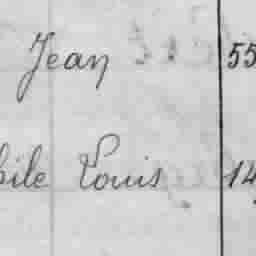 Jean 55
bile Louis 14